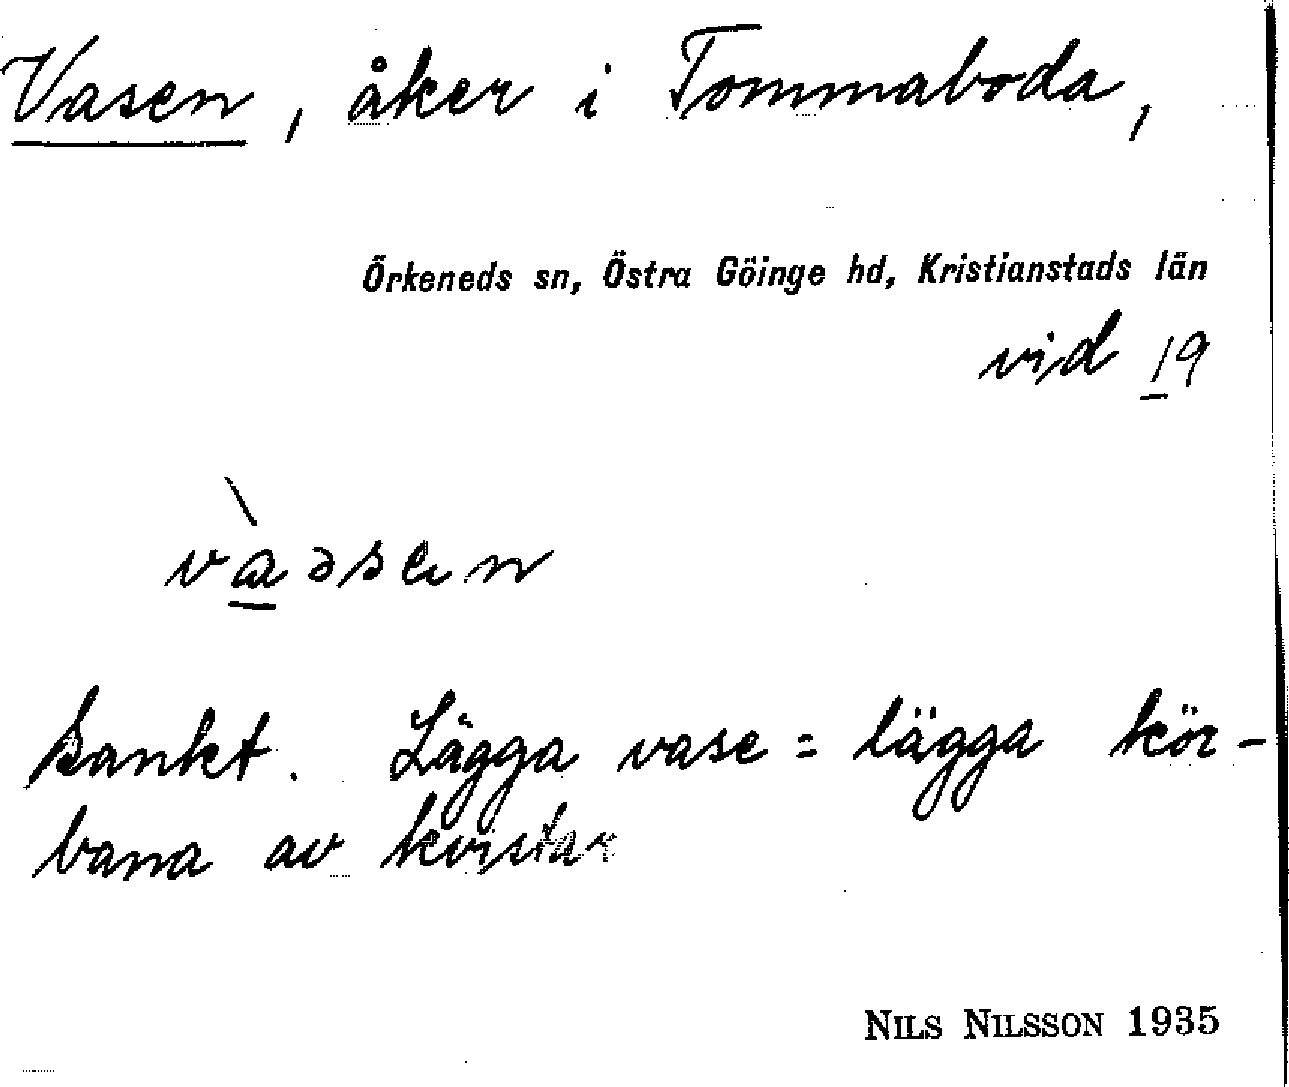 Vasen, åker i Tommaboda,
Örkeneds sn, Östra Göinge hd, Kristianstads län
vid 19
Sankt. Lägga vase = lägga kör-
bana av kvistar
NILS NILSSON 1935